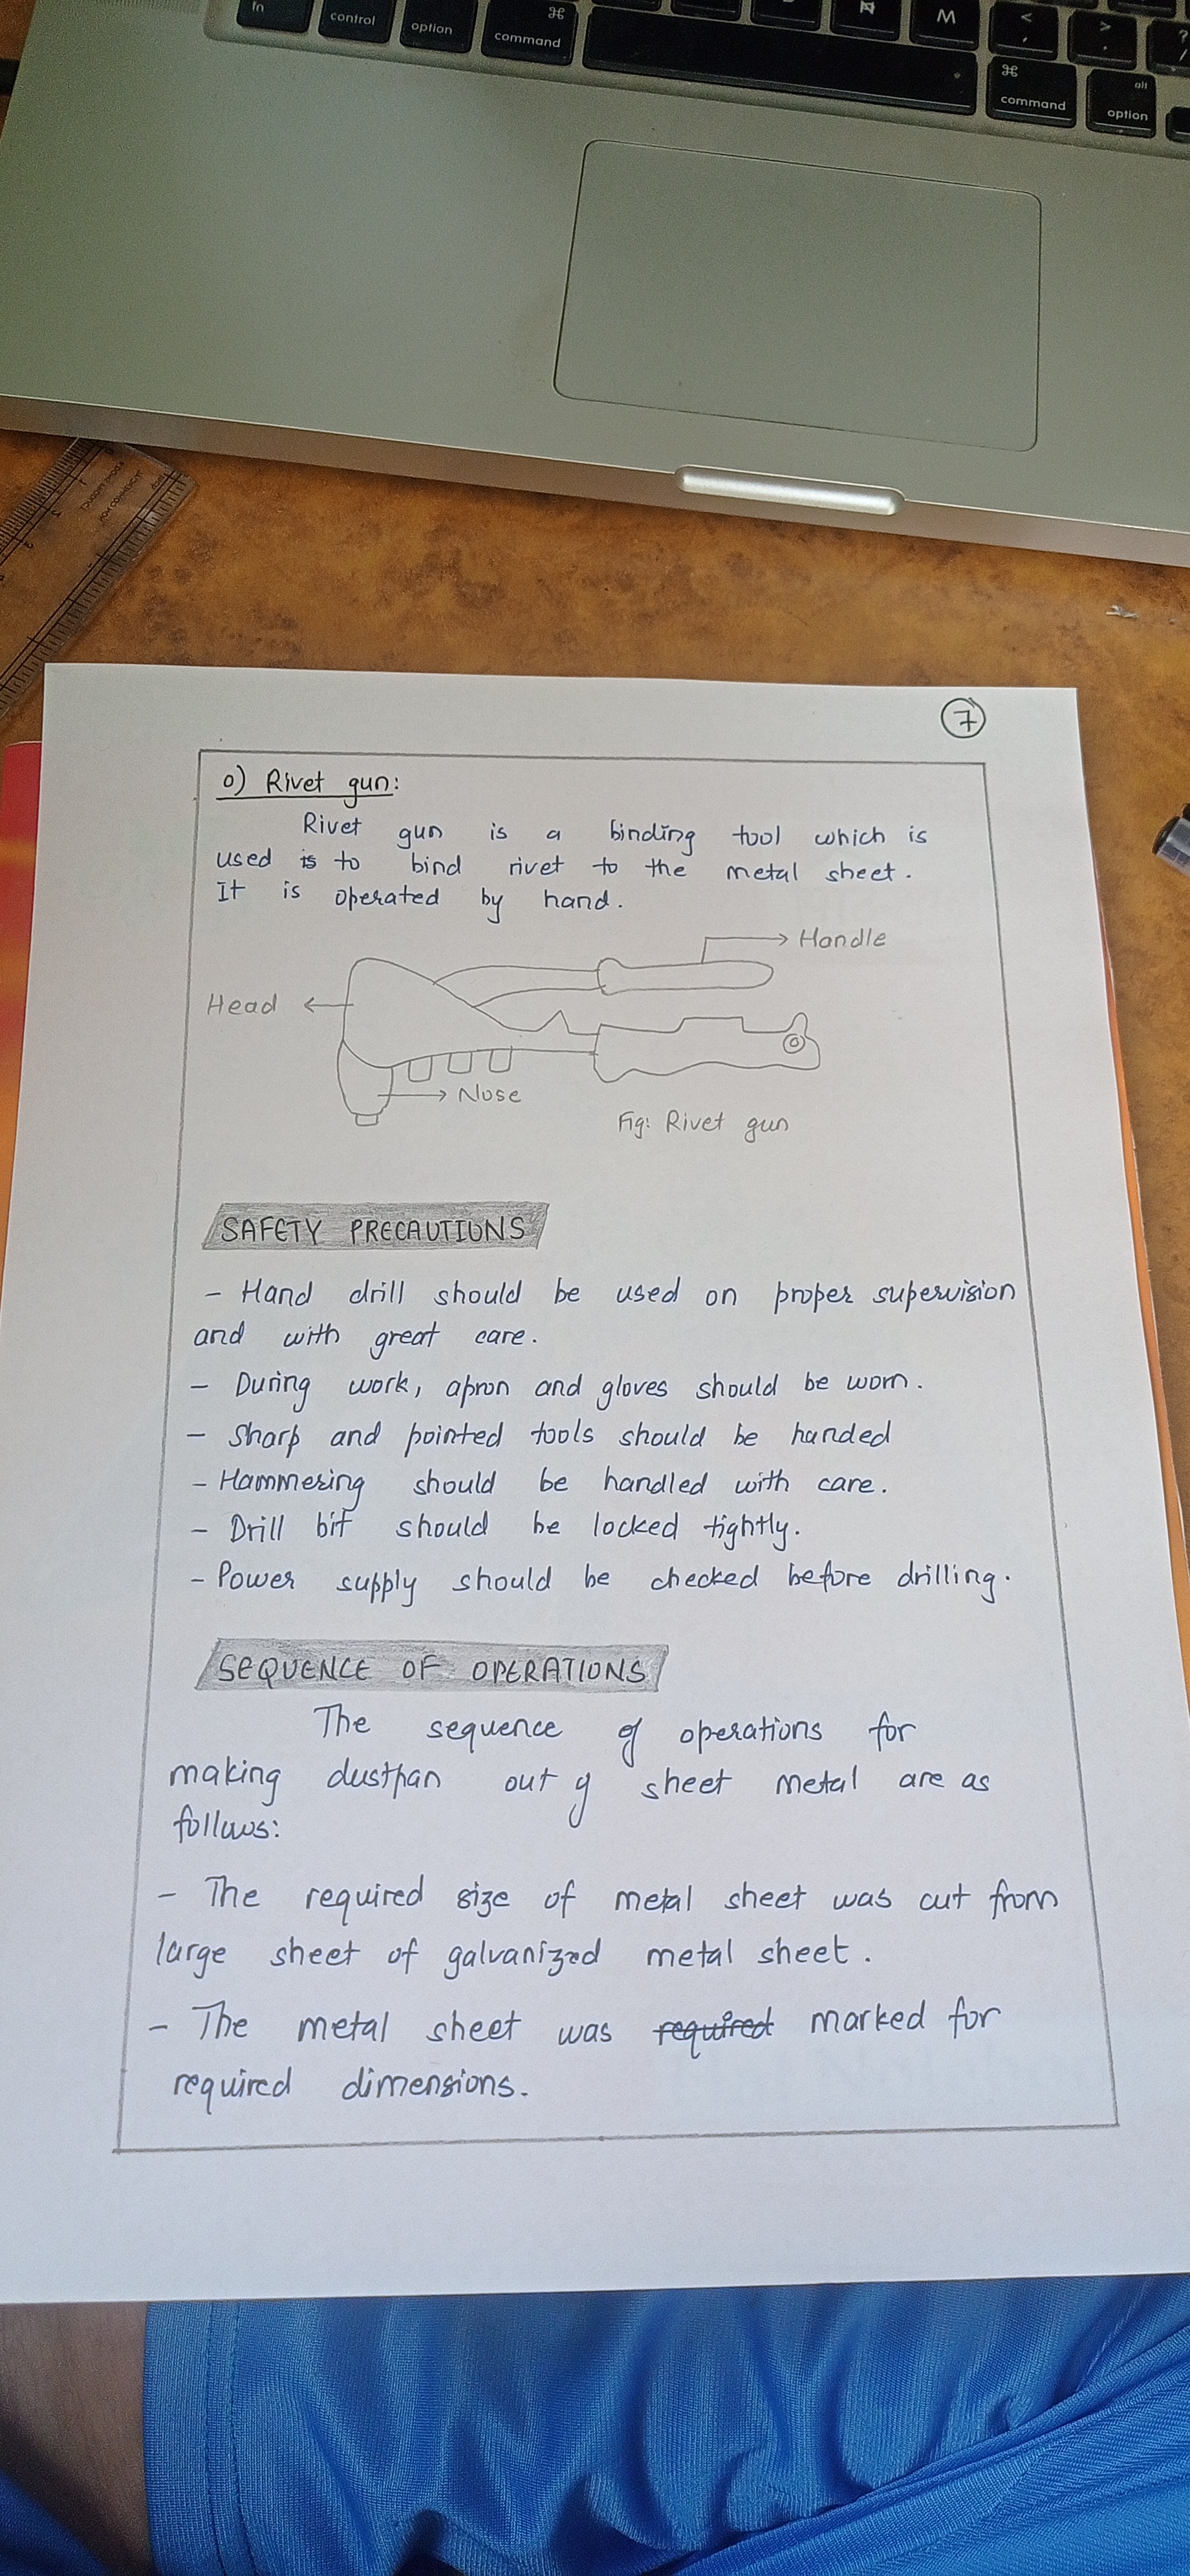 fn control option ⌘ command N M < , > . ? /
⌘ command alt option
7
o) Rivet gun:
Rivet gun is a binding tool which is
used is to bind rivet to the metal sheet.
It is operated by hand.
Handle
Head
Nose
Fig: Rivet gun
SAFETY PRECAUTIONS
- Hand drill should be used on proper supervision
and with great care.
- During work, apron and gloves should be worn.
- Sharp and pointed tools should be handed
- Hammering should be handled with care.
- Drill bit should be locked tightly.
- Power supply should be checked before drilling.
SEQUENCE OF OPERATIONS
The sequence of operations for
making dustpan out of sheet metal are as
follows:
- The required size of metal sheet was cut from
large sheet of galvanized metal sheet.
- The metal sheet was required marked for
required dimensions.